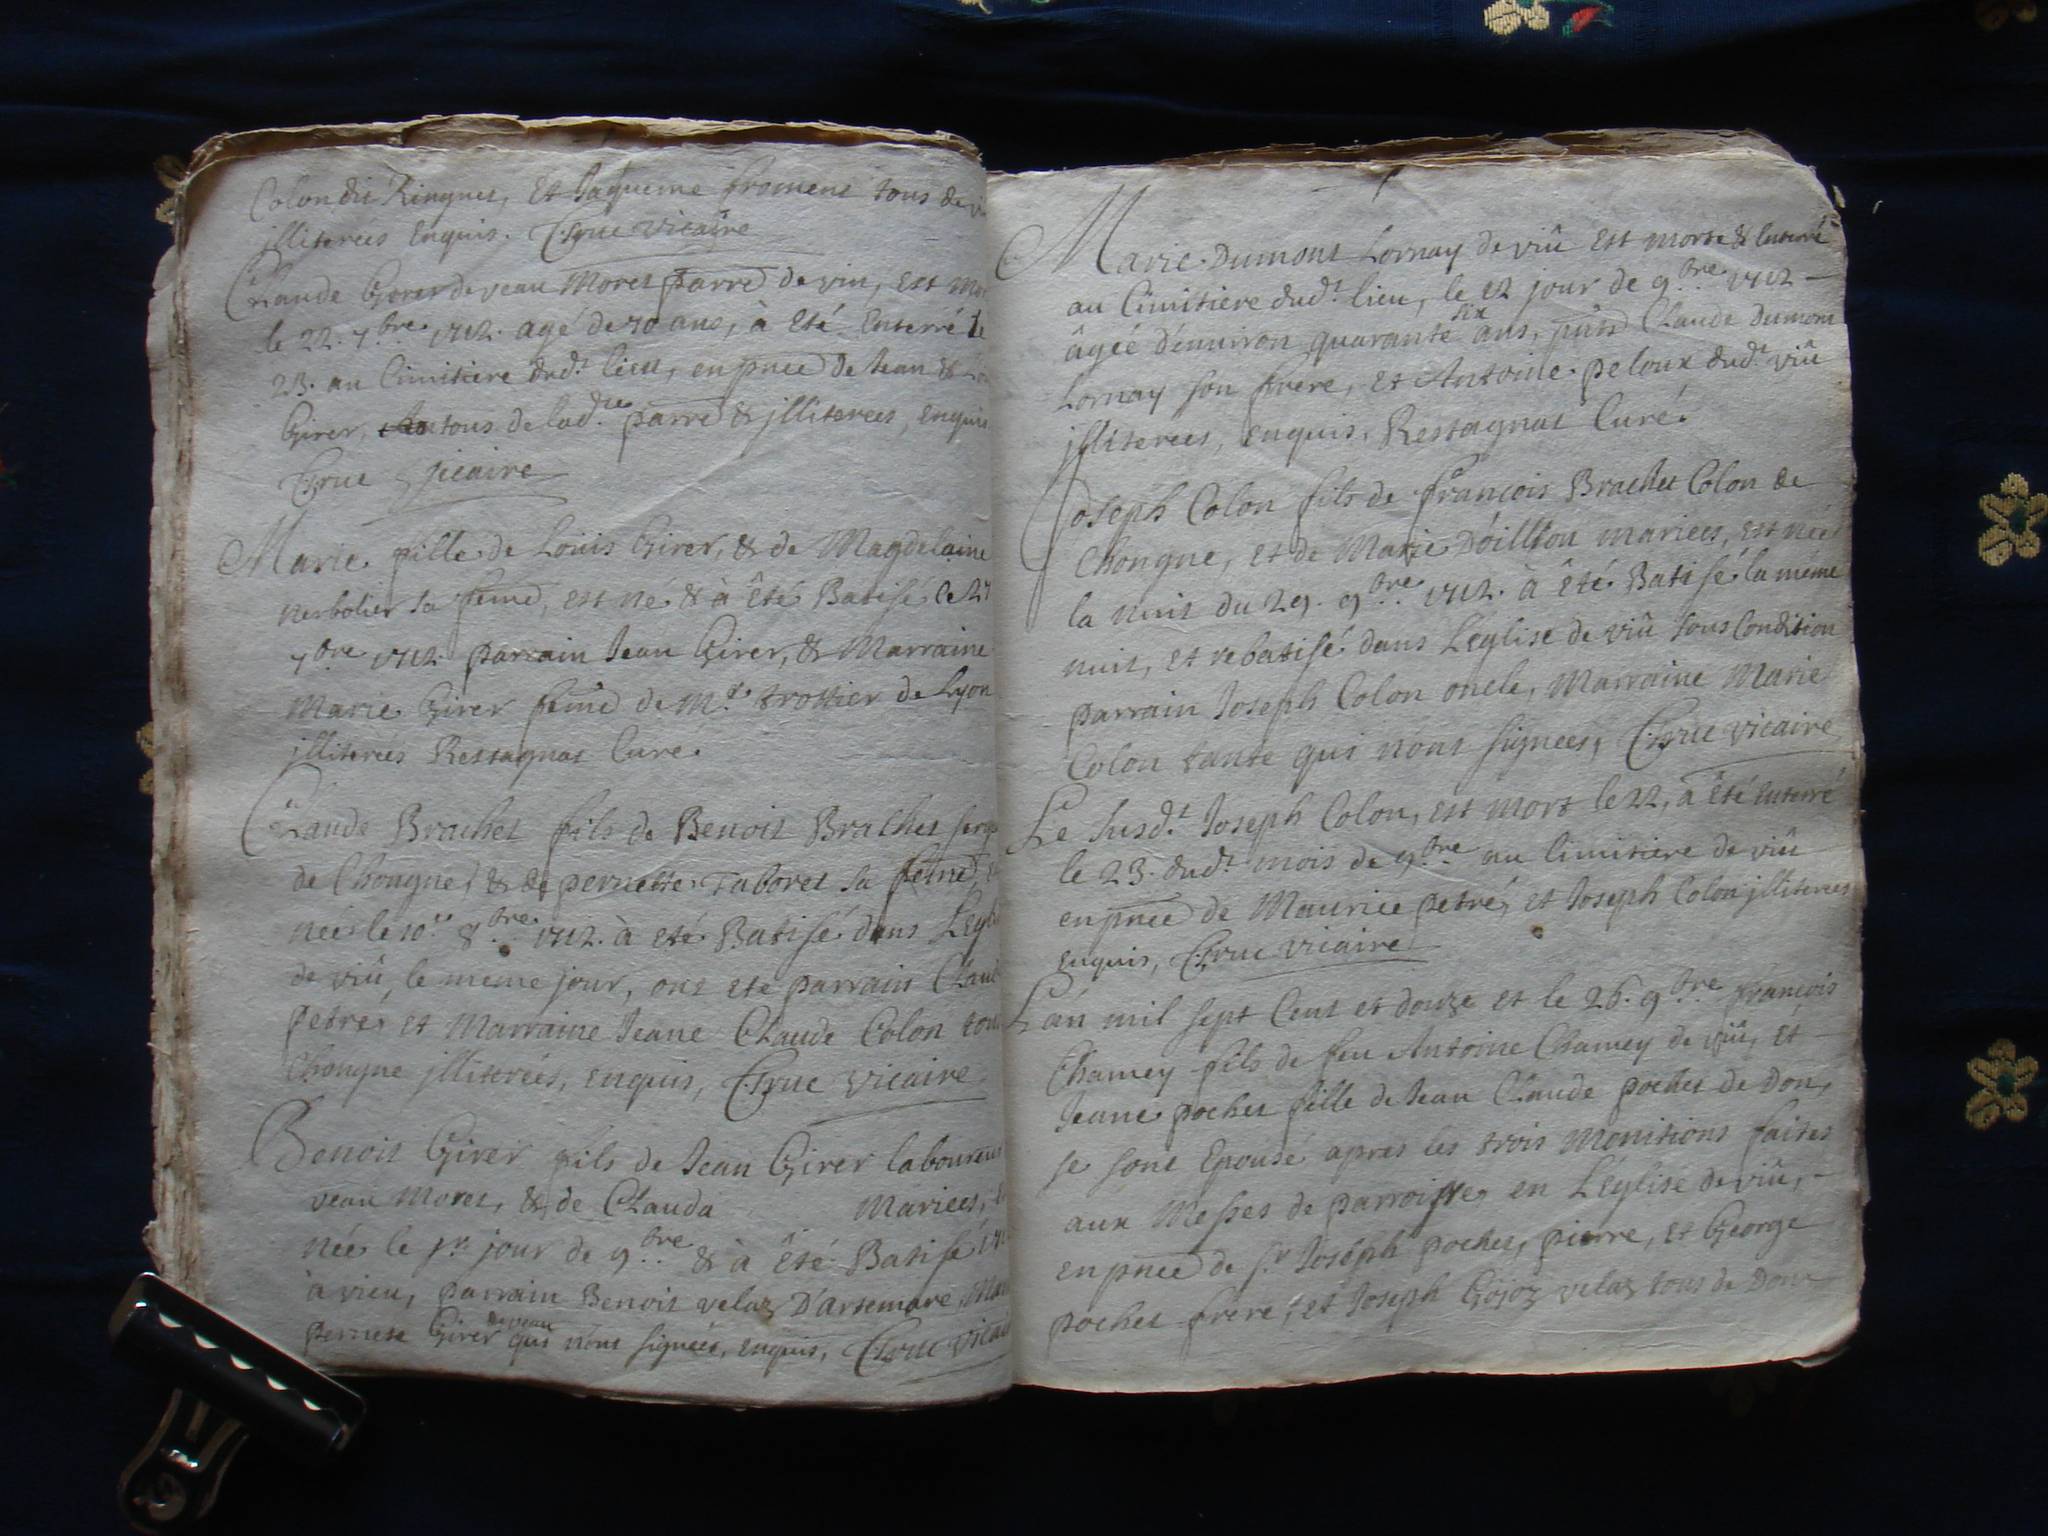 Colon dit Ringuet, Et Jaqueme froment tous de
jlliterees Enquis. Truc vicaire
Claude Girer de veau Moret parre de viu, est mor
le 22. 7.bre 1712. agé de 70 ans, à Eté Enterré le
23. au Cimitiere dud.t lieu, en pnce de Jean &
Girer, tous de lad.te parre & jlliterees, enquis
Truc vicaire
Marie fille de Loüis Girer, & de Magdelaine
nerbolier sa feme, est né & à Eté Batisé le 27
7bre 1712 parrain Jean Girer, & Marraine
Marie Girer feme de M.r trottier de Lyon
jlliterées Restagnat Cure.
Claude Brachet fils de Benoit Brachet
de Chongne, & de pernette Taboret sa feme,
née le 10.e 8.bre 1712. à eté Batisé dans L'Egl
de viû, le meme jour, ont eté parrain Claude
petre, et Marraine Jeane Claude Colon tous
Chongne jlliterées, enquis, Truc vicaire
Benoit Girer fils de Jean Girer laboureur
veau Moret, & de Clauda Mariees,
née le 1.r jour de 9.bre & à êté Batisé 1712
à vieu, parrain Benoit velaz D'artemare, Mar
pernete Girer de veau qui n'ont signées, enquis, Truc vicaire
Marie Dumont Lornay de viû Est morte & Enterré
au Cimitiere dud.t lieu, le 12 jour de 9.bre 1712 –
âgée d'énuiron quarante six ans, pnts Claude Dumont
Lornay son frere, et Antoine peloux dud.t viû
jlliterees, enquis, Restagnat Curé.
Joseph Colon fils de françois Brachet Colon de
Chongne, et de Marie D'oillion mariees, est née
la nuit du 29. 9.bre 1712. à êté Batisé la même
nuit, et rebatisé dans L'église de viû sous Condition
parrain Joseph Colon oncle, Marraine Marie
Colon tante qui n'ont signees, Truc vicaire
Le susd.t Joseph Colon, est mort le 22, à êté Enterré
le 23. dud.t mois de 9.bre au Cimitiere de viû
en pnce de Maurice petré, et Joseph Colon jlliterees
enquis, Truc vicaire
L'án mil sept Cent et douze et le 26. 9.bre françois
Chamey fils de feu Antoine Chamey de viû, et –
Jeane pochet fille de Jean Claude pochet de Don,
se sont Epousé apres les trois Monitions faites
aux Messes de parroisse, en L'église de viû, –
en pnce de s.r Joseph pochet, pierre, et George
pochet frere, et Joseph Gojoz velaz tous de Don